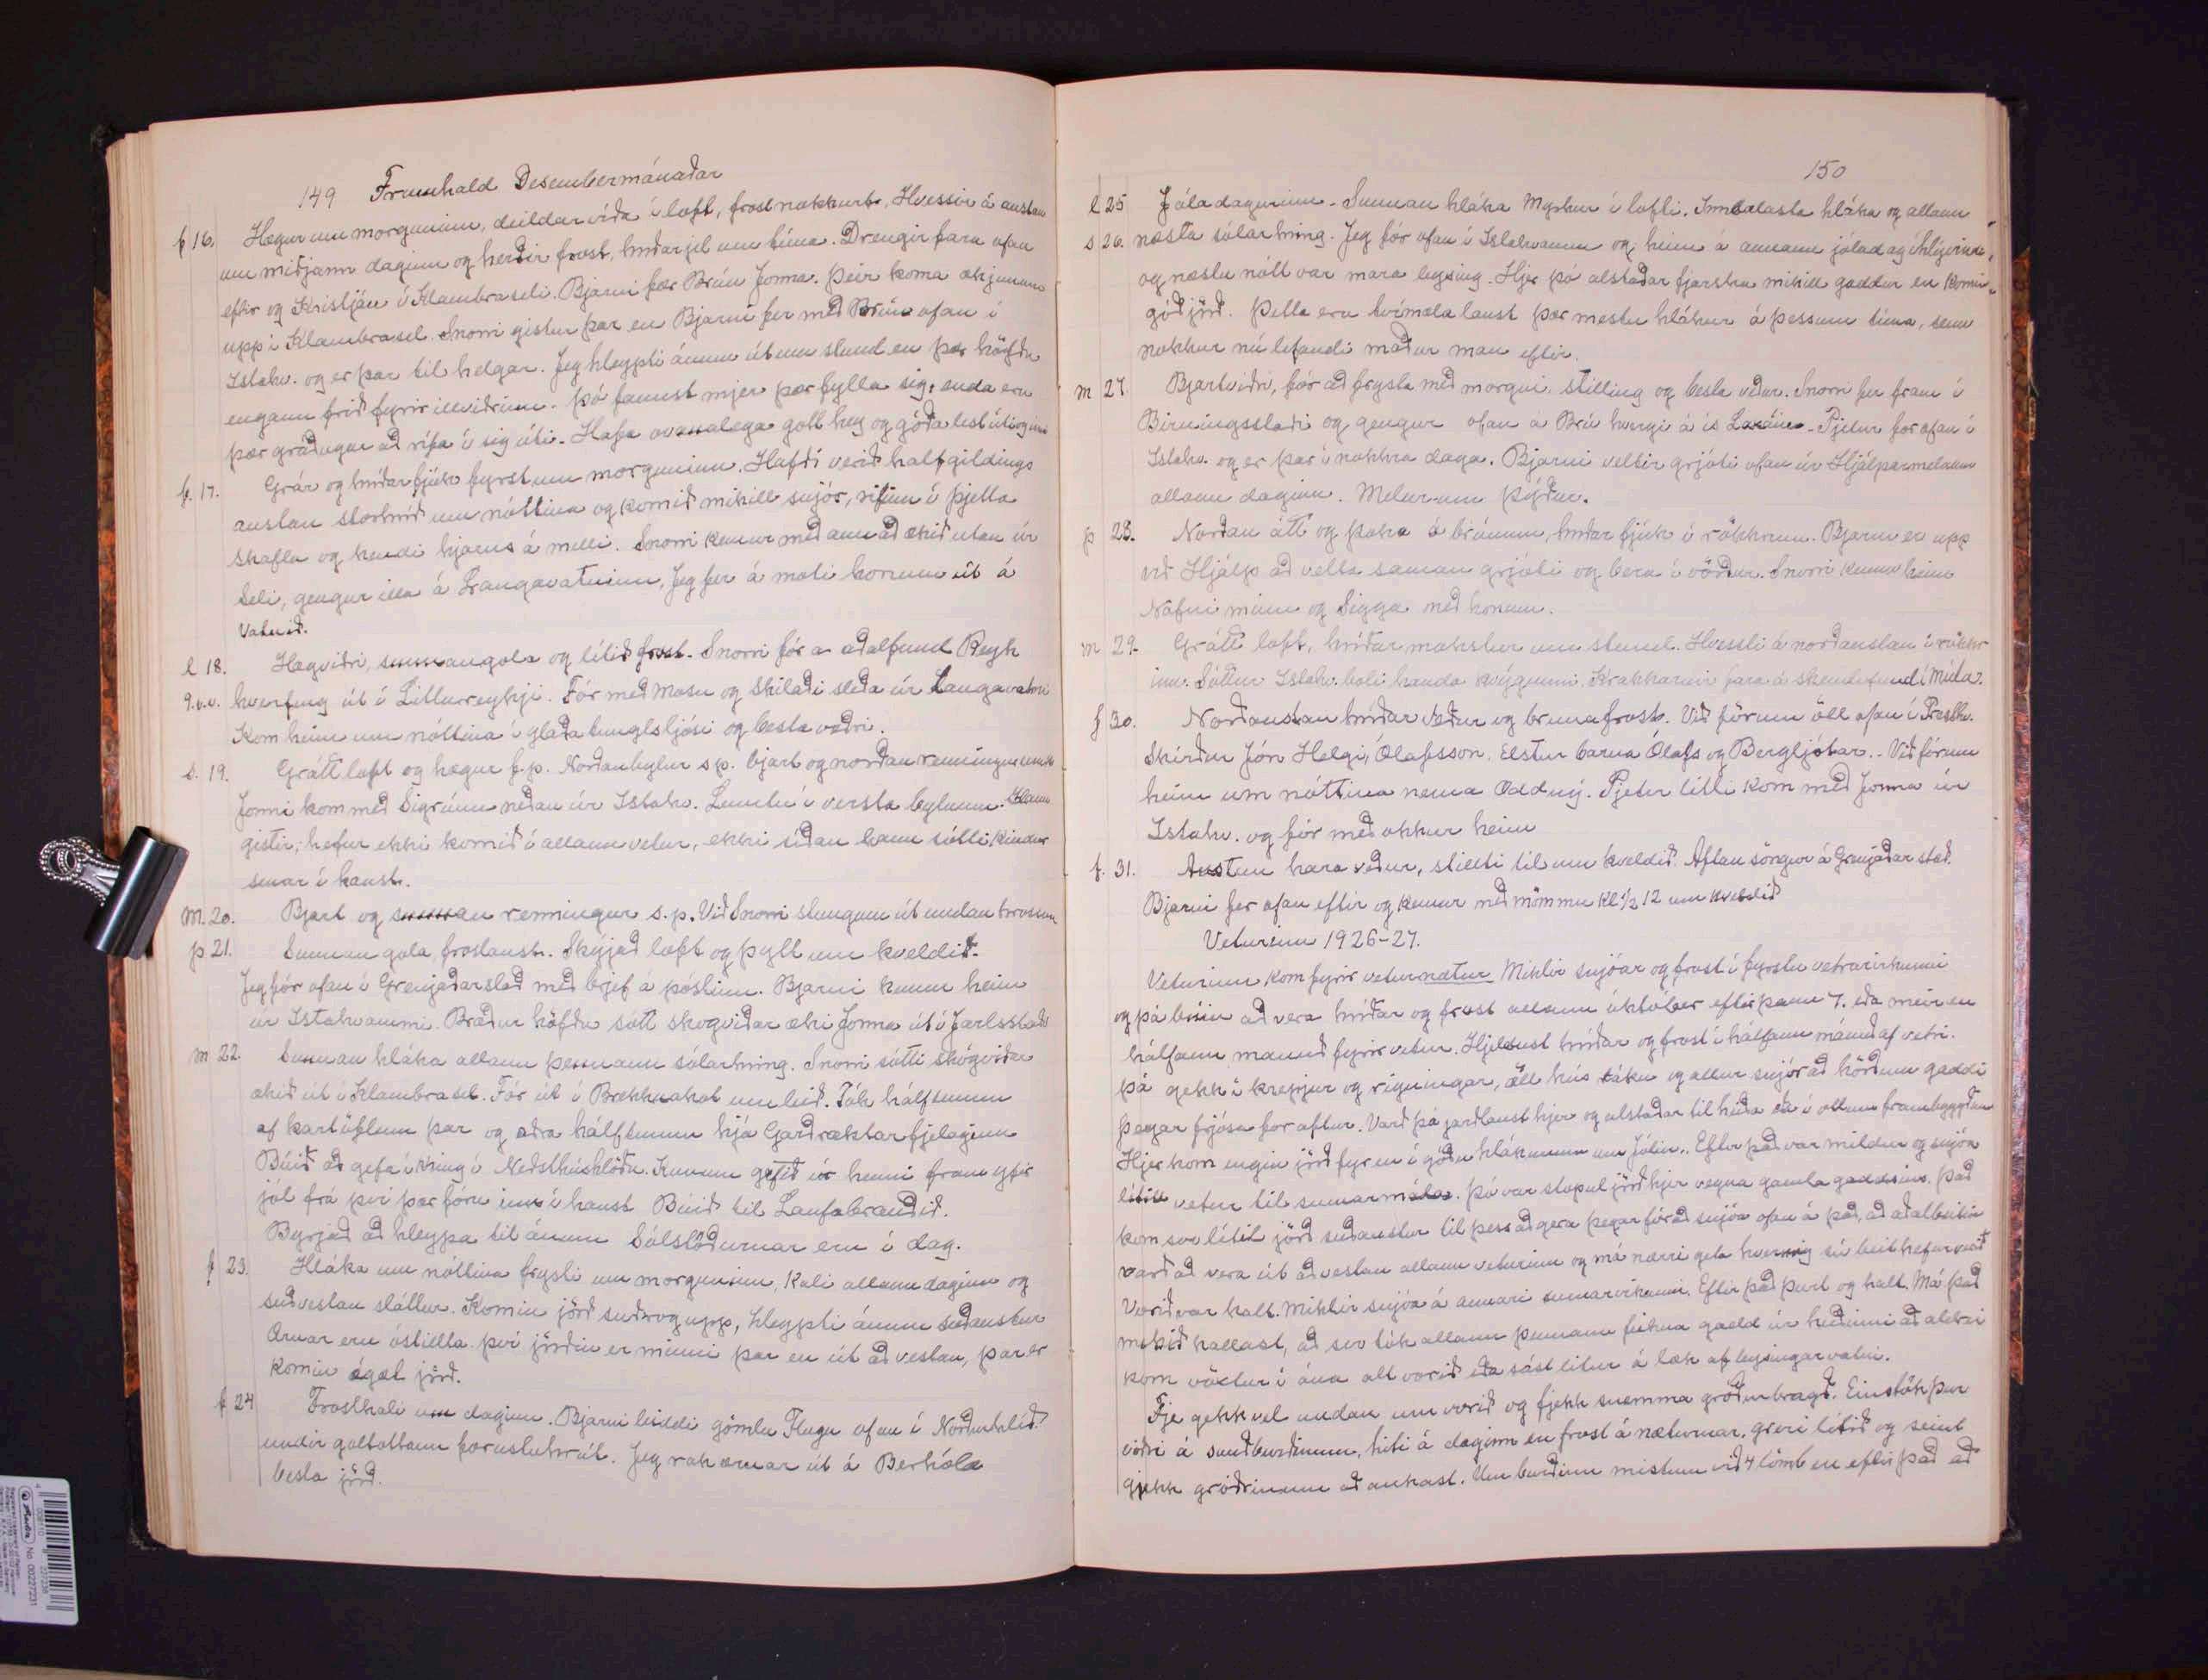 149 Framhald Desembermánaðar
f 16. Hægur um morguninn, deildar víða í loft, frost nokkurt. Hvessir á austan
um miðjann daginn og herðir frost, hríðarjel um tíma. Drengir fara ofan
eftir og Kristján í Klambraseli. Bjarni fær Brún Jonna. Þeir koma akjenum
upp í Klambrasel. Snorri gistir þar en Bjarni fer með Brún ofan í
Istahv. og er þar til helgar. Jeg hleypti ánum út um stund en þær höfðu
engann frið fyrir illviðrinu. Þó fannst mjer þær fylla sig, enda eru
þær gráðugar að rífa í sig úti. Hafa ovanalega gott hey og góða list úti og inni
f. 17. Grár og hríðar fjúk fyrst um morguninn. Hafði verið halfgildings
austan storhríð um nóttina og komið mikill snjór, rifinn í þjetta
skafla og hendi hjarns á milli. Snorri kemur með annað ækið utan úr
Seli, gengur illa á Langavatninu, Jeg fer á móti honum út á
Vatnið.
l 18. Hægviðri, sunnangola og lítið frost. Snorri fór a aðalfund Reyk
9.v.v. hverfing út í Litlureykji. Fór með Mosu og skilaði sleða úr Langavatni
Kom heim um nóttina í glaða tunglsljósi og besta veðri.
s. 19. Grátt loft og hægur f.p. Norðanbylur s p. bjart og norðan renningur
Jonni kom með Sigrúnu neðan úr Istahv. Lentu í versta bylnum. Hann
gistir, hefur ekki komið í allann vetur, ekki síðan hann sótti kindur
sínar í haust.
M. 20. Bjart og sunnan renningur s.p. Við Snorri stungum út undan hrossum
þ 21. Sunnan gola, frostlaust. Skýjað loft og þykt um kveldið.
Jeg fór ofan í Grenjaðarstað með brjef á póstinn. Bjarni kemur heim
úr Istahvammi. Bræður höfðu sótt skogviðar æki Jonna út í Jarlsstaði
m. 22. Sunnan hláka allann þennann sólarhring. Snorri sótti skógviðar
ækið út í Klambrasel. Fór út í Brekknakot um leið. Tók hálftunnu
af kartöflum þar og aðra hálftunnu hjá Garðræktarfjelaginu
Búið að gefa í kring í Neðsthúshlöðu. Kunnum gefið úr henni fram yfir
jól frá því þær fóru inn í haust Búið til Laufabrauðið.
Byrjað að hleypa til ánum Sólstöðurnar eru í dag.
f 23. Hláka um nóttina frysti um morguninn, Kali allann daginn og
suðvestan sláttur. Komin jörð suður og upp, hleypti ánum suðaustur
Ærnar eru óstilltar því jörðin er minni þar en út að vestan, þar er
komin ágæt jörð.
f 24 Frosthali um daginn. Bjarni leiddi gömlu Flugu ofan í Norðurhlíð
undir galtottann forustuhrút. Jeg rak ærnar út á Berhóla
besta jörð.
150
l 25 Jóladagurinn. Sunnan hláka Mystur í lofti. Inndælasta hláka og allann
s 26. næsta sólarhring. Jeg fór ofan í Istahvamm og heim á annann jóladag í hlývindi,
og næstu nótt var mara leysing. Hjer þó alstaðar fjarska mikill gaddur en komin
góð jörð. Þetta eru tvímæla laust þær mestu hlákur á þessum tíma, sem
nokkur nú lifandi maður man eftir.
m 27. Bjartviðri, fór að frysta með morgni, stilling og besta veður. Snorri fer fram í
Birningsstaði og gengur ofan a Brú hvergi á ís Laxáin. Pjetur fór ofan í
Istahv. og er þar í nokkra daga. Bjarni veltir grjóti ofan úr Hjálparmelnum
allann daginn. Melurinn þýður.
þ 28. Norðan átt og þoka á brúnum, hríðar fjúk í rökkrinu. Bjarni er upp
við Hjálp að velta saman grjóti og bera í vörður. Snorri kemur heim
Nafni minn og Sigga með honum.
m 29. Grátt loft, hríðar mokstur um stund. Hvessti á norðaustan í rökkr
inu. Sóttur Istahv. boli handa kvígunni. Krakkarnir fara á skemtifund í Múla.
f 30. Norðaustan hríðar veður og bruna frost. Við förum öll ofan í Presthv.
Skírður Jón Helgi, Ólafsson. Elstur barna Ólafs og Bergljótar. Við fórum
heim um nóttina nema Oddný. Pjetur litli kom með Jonna úr
Istahv. og fór með okkur heim
f. 31. Austan hara veður, stillti til um kveldið. Aftan söngur á Grenjaðar stað.
Bjarni fer ofan eftir og kemur með mömmu Kl ½ 12 um kveldið
Veturinn 1926-27.
Veturinn kom fyrir veturnætur Miklir snjóar og frost í fyrstu vetrarvikunni
og þá búin að vera hríðar og frost allann október eftir þann 7. eða meir en
hálfann mánuð fyrir vetur. Hjeldust hríðar og frost í hálfann mánuð af vetri.
Þá gekk í krepjur og rigningar, öll hús láku og allur snjór að hörðum gaddi
þegar frjósa fór aftur. Varð þá jarðlaust hjer og alstaðar til heiða eða í öllum frambyggðum
Hjer kom engin jörð fyr en í góðu hlákunum um Jólin. Eftir það var mildur og snjóa
lítill vetur til sumarmála. Þó var stopul jörð hjer vegna gamla gaddsins. Það
kom svo lítil jörð suðaustur til þess að gera þegar fór að snjóa ofan á það, að aðalbeitin
varð að vera út að vestan allann veturinn og má nærri geta hvernig sú beit hefur verið
Vorið var kalt. Miklir snjóa á annari sumarvikunni. Eftir það þurt og kalt. Má það
mikið kallast, að svo tók allann þennann feikna gadd úr heiðinni að aldrei
kom vöxtur í ána alt vorið eða sást litur á læk af leysingarvatni.
Fje gekk vel undan um vorið og fjekk snemma gróðurbragð. Einstök þur
viðri á sauðburðinum, hiti á daginn en frost á næturnar, greri lítið og seint
gjekk gróðrinum að aukast. Um burðinn mistum við 4 lömb en eftir það að